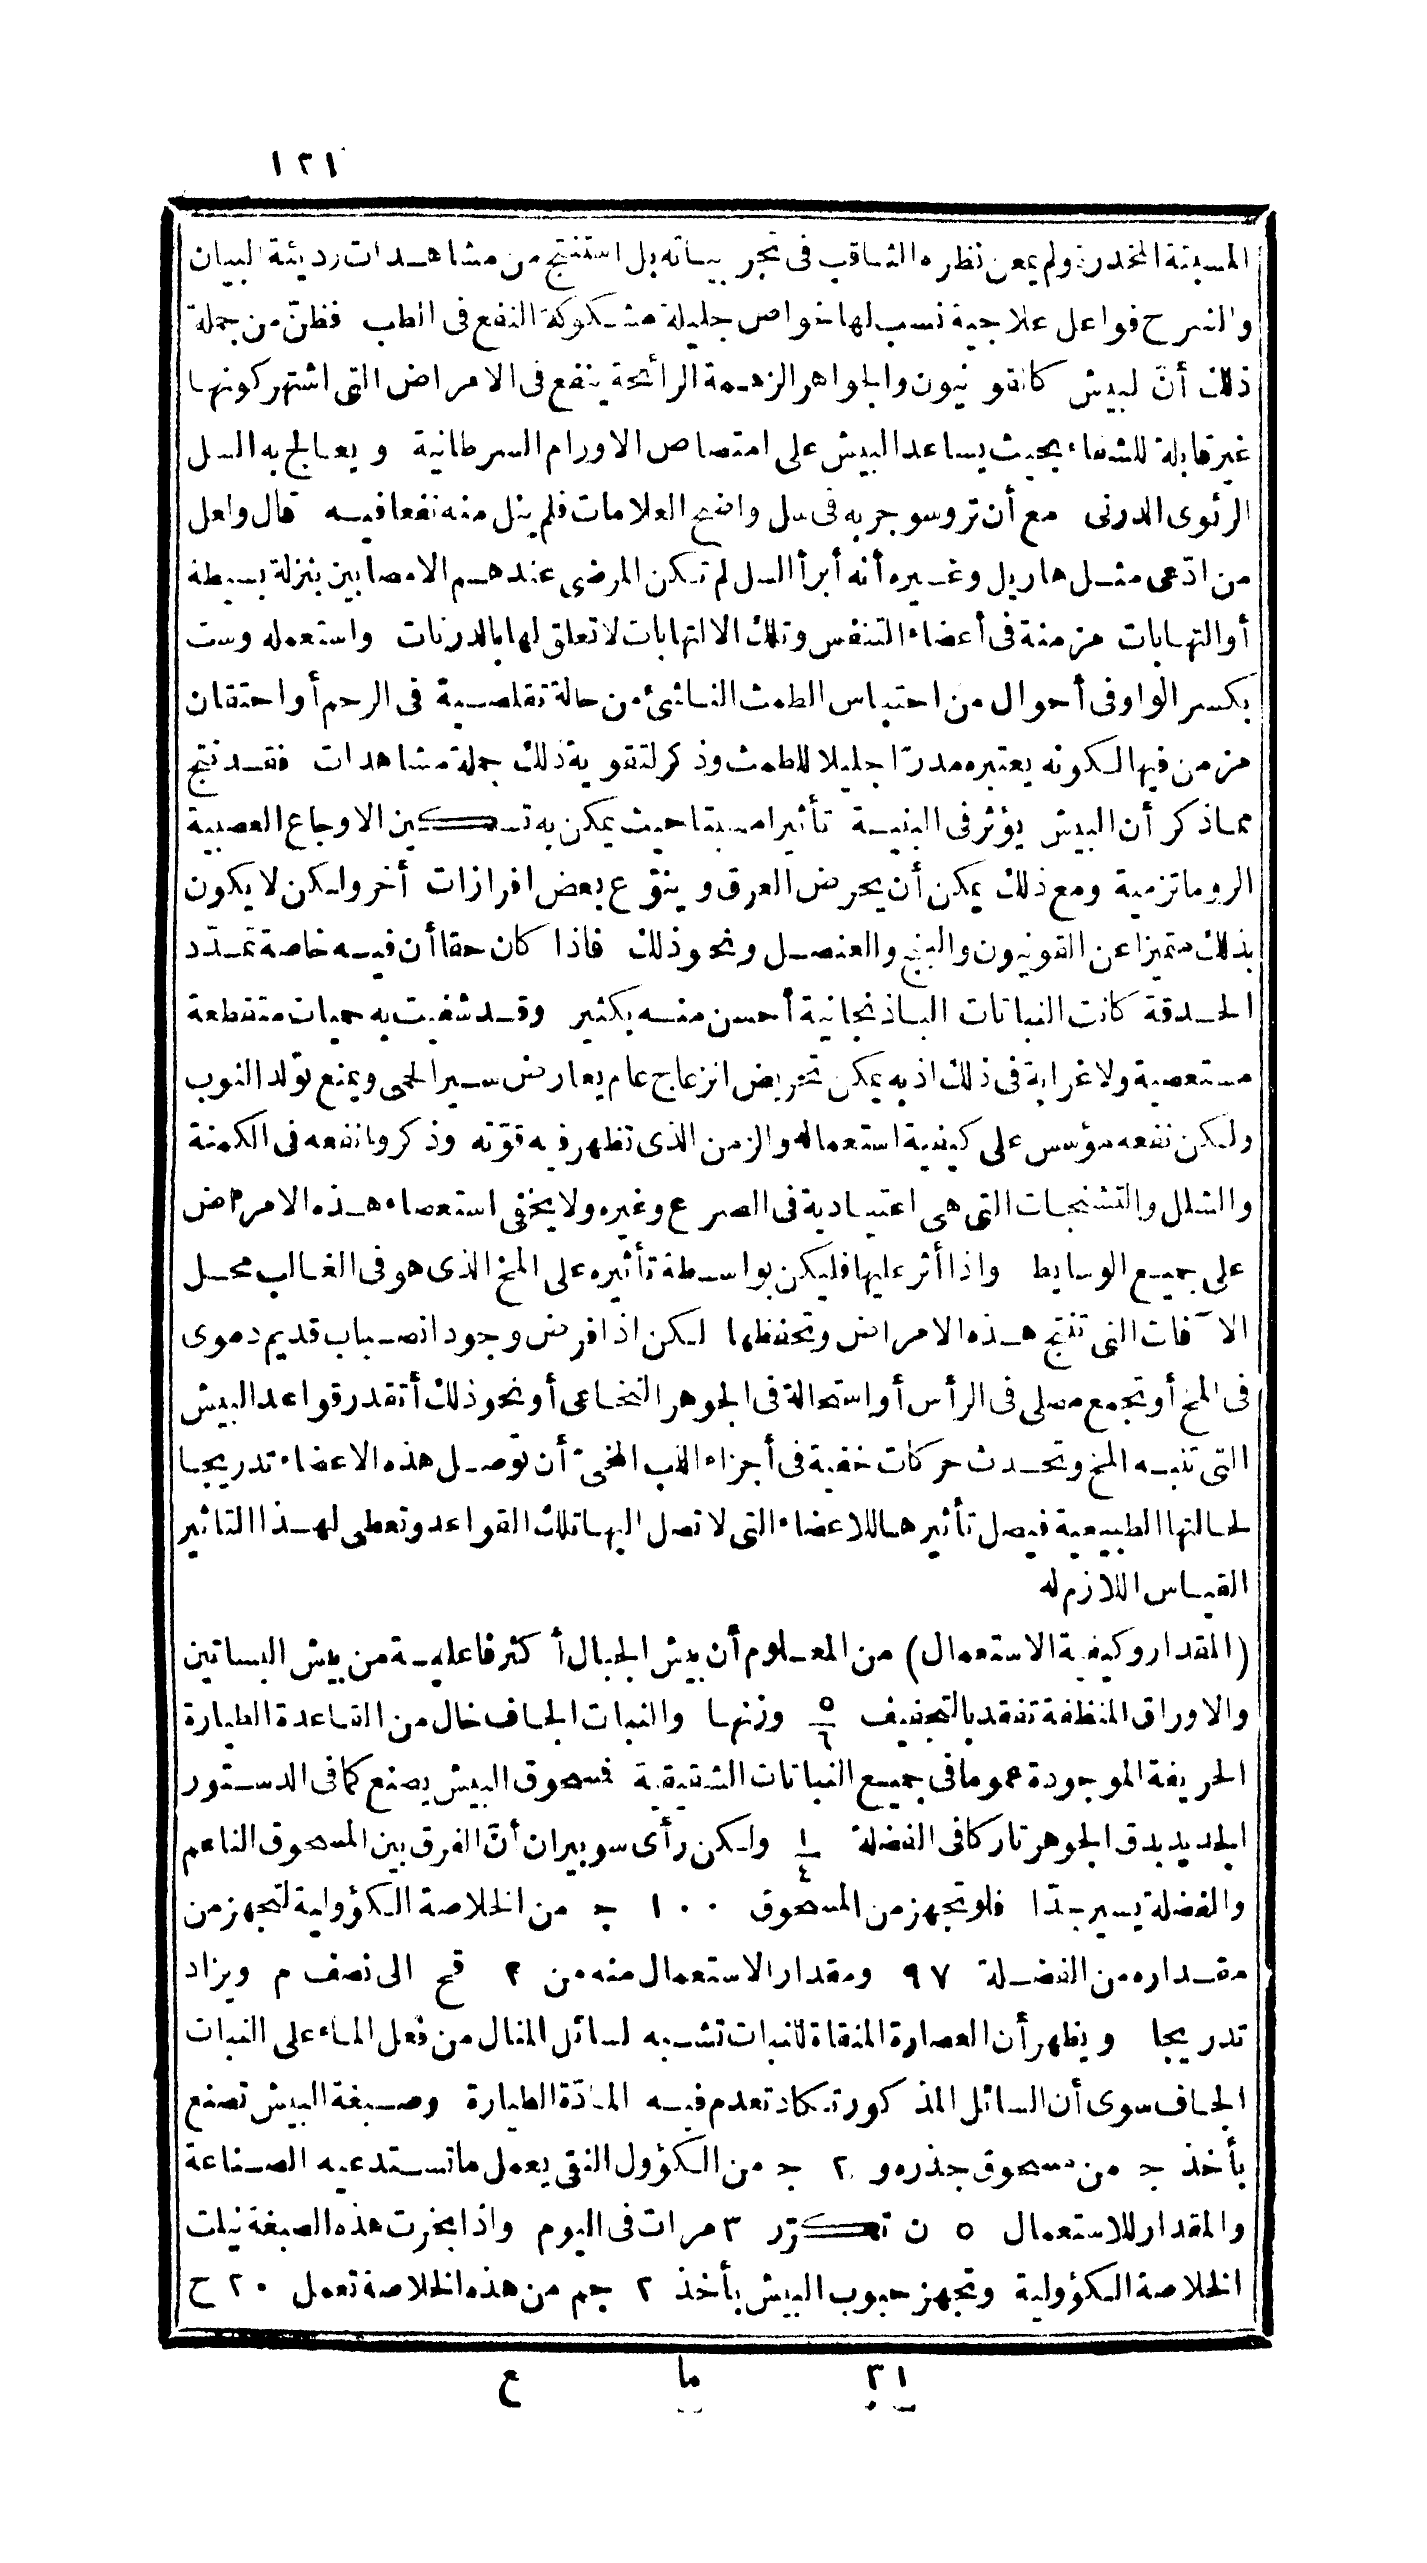 ١٢١
المسبتة المخدرة ولم يمعن نظره الثاقب فى تجربياته بل استنتج من مشاهدات رديئة البيان
والشرح فواعل علاجية نسب لها خواص جليلة مشكوكة النفع فى الطب فظنّ من جملة
ذلك أنّ لبيش كالقونيون والجواهر الزهمة الرائحة ينفع فى الامراض التى اشتهر كونها
غير قابلة للشفاء بحيث يساعد البيش على امتصاص الاورام السرطانية ويعالج به السل
الرئوى الدرنى مع أن تروسو جربه فى سل واضح العلامات فلم ينل منه نفعا فيه قال ولعل
من ادّعى مثل هاريل وغيره أنه أبرأ السل لم تكن المرضى عندهم الامصابين بنزلة بسيطة
أو التهابات مزمنة فى أعضاء التنفس وتلك الالتهابات لا تعلق لها بالدرنات واستعمله وست
بكسر الواو فى أحوال من احتباس الطمث الناشئ من حالة تقلصية فى الرحم أو احتقان
مزمن فيها لكونه يعتبره مدرّا جليلا للطمث وذكر لتقوية ذلك جملة مشاهدات فقد نتج
مماذكر أن البيش يؤثر فى البنية تأثيرا مسبتا حيث يمكن به تسكين الاوجاع العصبية
الروماتزمية ومع ذلك يمكن أن يحرض العرق وينوّع بعض افرازات أخر ولكن لا يكون
بذلك متميزا عن القونيون والبنج والعنصل ونحو ذلك فاذا كان حقا أن فيه خاصة تمدّد
الحدقة كانت النباتات الباذنجانية أحسن منه بكثير وقد شفيت به حميات متقطعة
مستعصية ولا غرابة فى ذلك اذ به يمكن تحريض انزعاج عام يعارض سير الحمى ويمنع تولد النوب
ولكن نفعه مؤسس على كيفية استعماله والزمن الذى تظهر فيه قوّته وذكروا نفعه فى الكمنة
والشلل والتشنجات التى هى اعتيادية فى الصرع وغيره ولا يخفى استعصاء هذه الامراض
على جميع الوسايط واذا أثر عليها فليكن بواسطة تأثيره على المخ الذى هو فى الغالب محل
الآفات التى تنتج هذه الامراض وتحفظها لكن اذا فرض وجود انصباب قديم دموى
فى المخ أو تجمع مصلى فى الرأس أو استحالة فى الجوهر النخاعى أو نحو ذلك أتقدر قواعد البيش
التى تنبه المخ وتحدث حركات خفية فى أجزاء اللب المخىّ أن توصل هذه الاعضاء تدريجا
لحالتها الطبيعية فيصل تأثيرها للاعضاء التى لا تصل اليها تلك القواعد وتعطى لهذا التاثير
القياس اللازم له
(المقدار وكيفية الاستعمال) من المعلوم أن بيش الجبال أكثر فاعلية من بيش البساتين
والاوراق المنظفة تفقد بالتجفيف ٥/٦ وزنها والنبات الجاف خال من القاعدة الطيارة
الحريفة الموجودة عموما فى جميع النباتات الشقيقية فمسحوق البيش يصنع كما فى الدستور
الجديد بدق الجوهر تاركا فى الفضلة ١/٤ ولكن رأى سوبيران أنّ الفرق بين المسحوق الناعم
والفضلة يسير جدّا فلو تجهز من المسحوق ١٠٠ ج من الخلاصة الكؤولية لتجهز من
مقداره من الفضلة ٩٧ ومقدار الاستعمال منه من ٢ قح الى نصف م ويزاد
تدريجا ويظهر أن العصارة المنقاة للنبات تشبه لسائل المنال من فعل الماء على النبات
الجاف سوى أن السائل المذكور تكاد تعدم فيه المادّة الطيارة وصبغة البيش تصنع
بأخذ ج من مسحوق جذره و ٢ ج من الكؤول النقى يعمل ما تستدعيه الصناعة
والمقدار للاستعمال ٥ ن تكرّر ٣ مرات فى اليوم واذا بخرت هذه الصبغة نيلت
الخلاصة الكؤولية وتجهز حبوب البيش بأخذ ٢ جم من هذه الخلاصة تعمل ٢٠ ح
٢١ ما ع